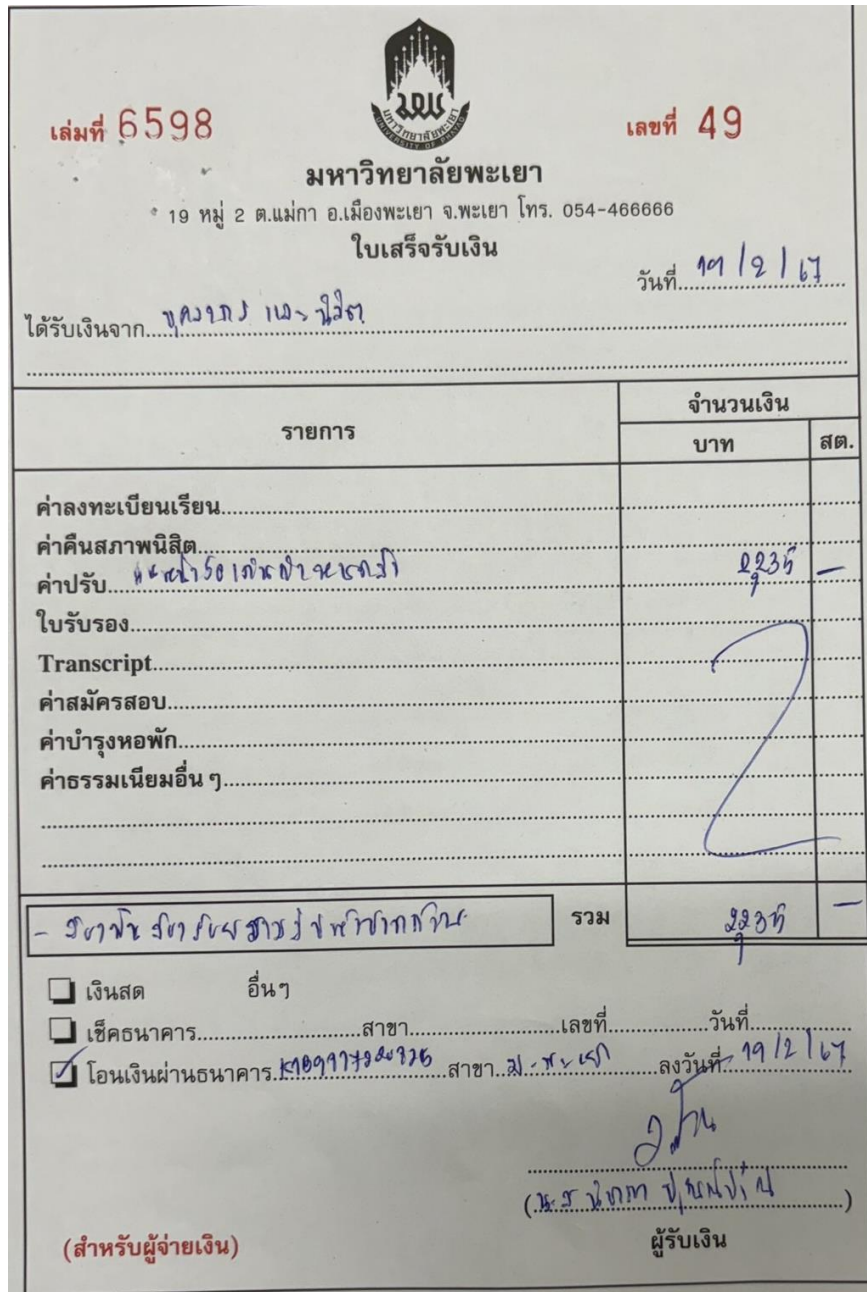 เล่มที่ 6598 เลขที่ 49
มพ
มหาวิทยาลัยพะเยา
UNIVERSITY OF PHAYAO
มหาวิทยาลัยพะเยา
19 หมู่ 2 ต.แม่กา อ.เมืองพะเยา จ.พะเยา โทร. 054-466666
ใบเสร็จรับเงิน
วันที่ 19/2/67
ได้รับเงินจาก บุคลากร และ นิสิต
รายการ จำนวนเงิน
บาท สต.
ค่าลงทะเบียนเรียน
ค่าคืนสภาพนิสิต
ค่าปรับ 2,235 -
ใบรับรอง
Transcript
ค่าสมัครสอบ
ค่าบำรุงหอพัก
ค่าธรรมเนียมอื่น ๆ
รวม 2,235 -
เงินสด อื่นๆ
เช็คธนาคาร สาขา เลขที่ วันที่
โอนเงินผ่านธนาคาร สาขา ม.พะเยา ลงวันที่ 19/2/67
(น.ส. )
(สำหรับผู้จ่ายเงิน) ผู้รับเงิน